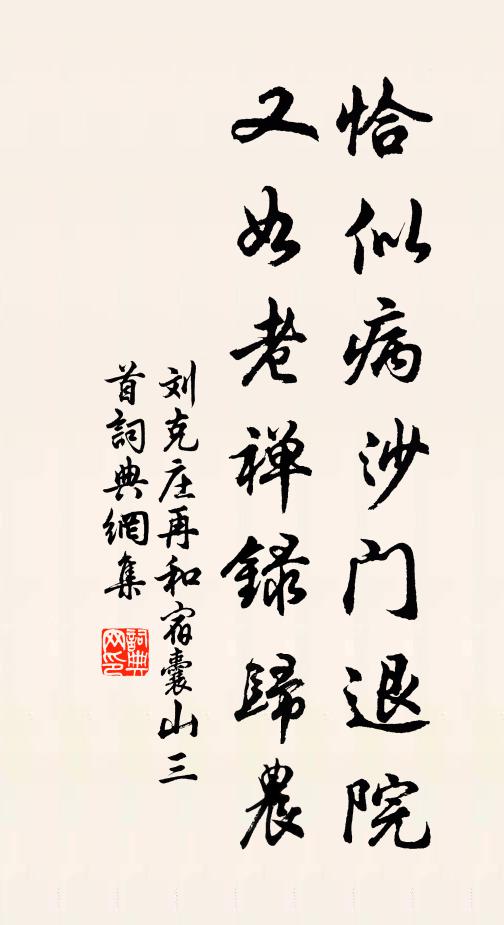 恰似病沙门退院
又如老禅録歸農
刘克庄再和宿囊山三
首詞典網集
詞典
网印